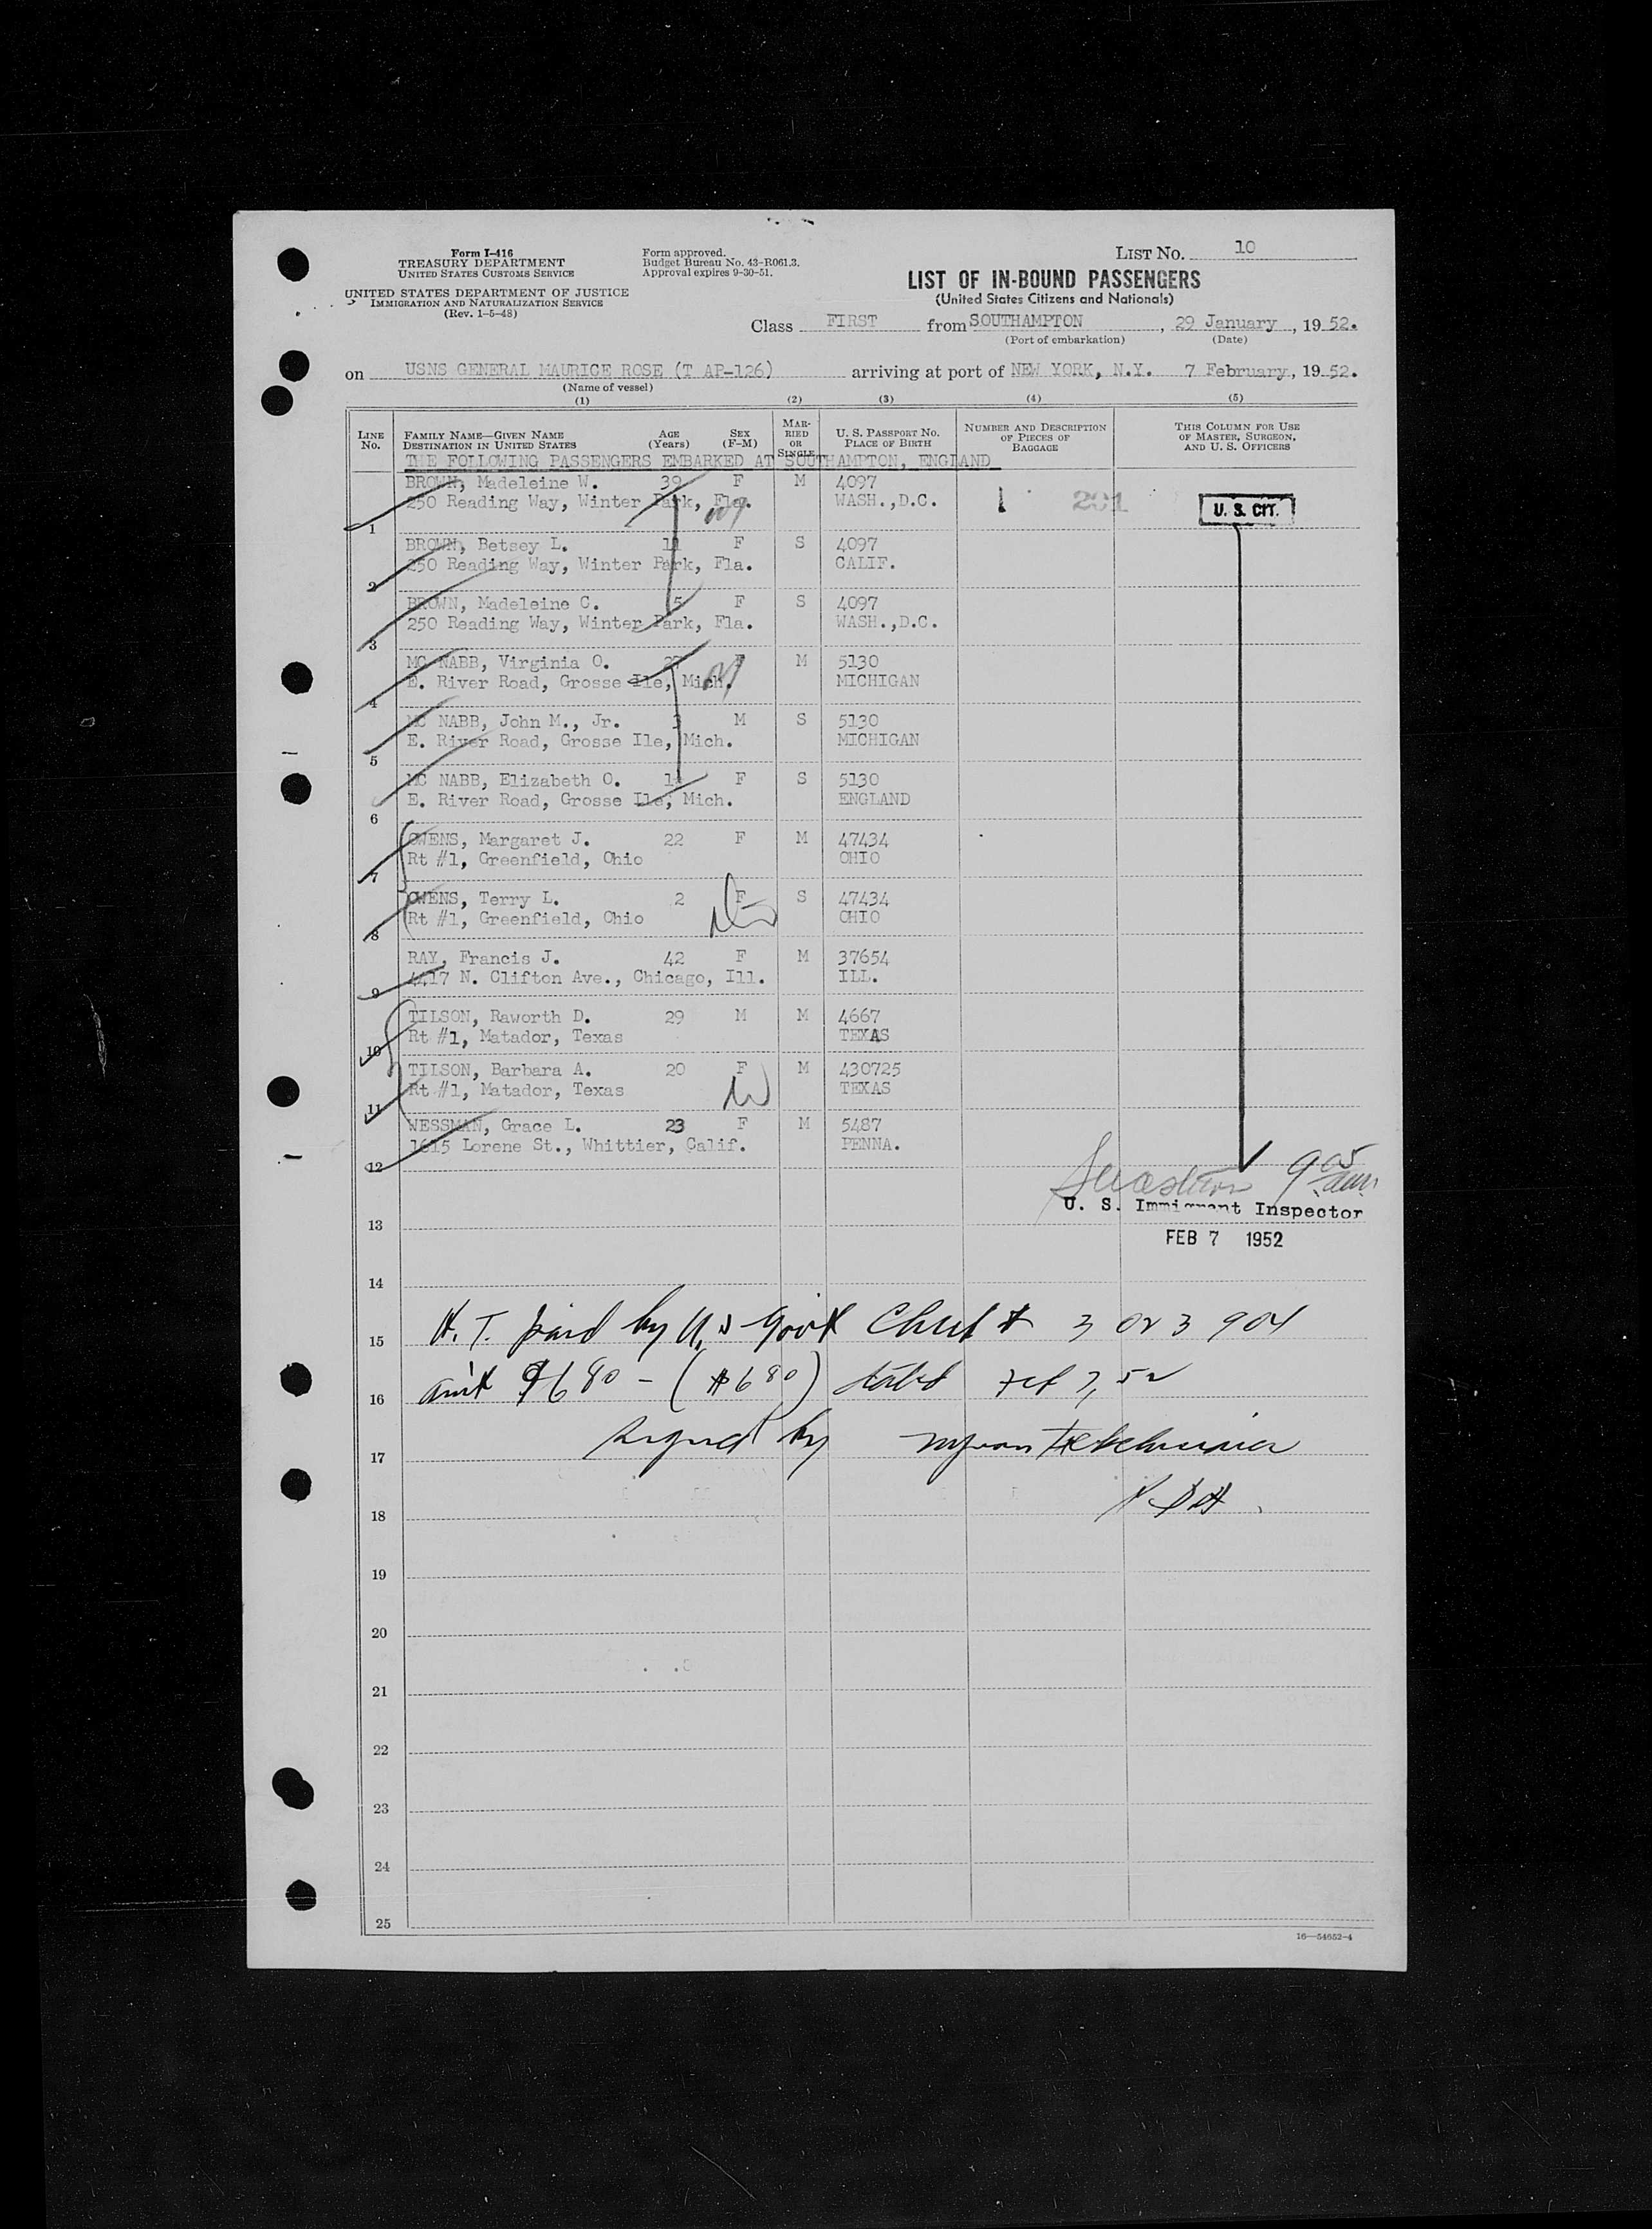 Form I-416
TREASURY DEPARTMENT
UNITED STATES CUSTOMS SERVICE
UNITED STATES DEPARTMENT OF JUSTICE
IMMIGRATION AND NATURALIZATION SERVICE
(Rev. 1-5-48)
Form approved.
Budget Bureau No. 43-R061.3.
Approval expires 9-30-51.
LIST No. 10
LIST OF IN-BOUND PASSENGERS
(United States Citizens and Nationals)
Class FIRST from SOUTHAMPTON, 29 January, 1952.
(Port of embarkation) (Date)
on USNS GENERAL MAURICE ROSE (T AP-126) arriving at port of NEW YORK, N.Y. 7 February, 1952.
(Name of vessel)
(1) (2) (3) (4) (5)
LINE No. FAMILY NAME—GIVEN NAME DESTINATION IN UNITED STATES AGE (Years) SEX (F-M) MARRIED OR SINGLE U. S. PASSPORT No. PLACE OF BIRTH NUMBER AND DESCRIPTION OF PIECES OF BAGGAGE THIS COLUMN FOR USE OF MASTER, SURGEON, AND U. S. OFFICERS
THE FOLLOWING PASSENGERS EMBARKED AT SOUTHAMPTON, ENGLAND
BROWN, Madeleine W. 39 F M 4097
1 250 Reading Way, Winter Park, Fla. WASH.,D.C. 1 201 U. S. CIT.
BROWN, Betsey L. 11 F S 4097
2 250 Reading Way, Winter Park, Fla. CALIF.
BROWN, Madeleine C. 5 F S 4097
3 250 Reading Way, Winter Park, Fla. WASH.,D.C.
MC NABB, Virginia O. 27 F M 5130
4 E. River Road, Grosse Ile, Mich. MICHIGAN
MC NABB, John M., Jr. 3 M S 5130
5 E. River Road, Grosse Ile, Mich. MICHIGAN
MC NABB, Elizabeth O. F S 5130
6 E. River Road, Grosse Ile, Mich. ENGLAND
OWENS, Margaret J. 22 F M 47434
7 Rt #1, Greenfield, Ohio OHIO
OWENS, Terry L. 2 F S 47434
8 Rt #1, Greenfield, Ohio OHIO
RAY, Francis J. 42 F M 37654
9 4417 N. Clifton Ave., Chicago, Ill. ILL.
TILSON, Raworth D. 29 M M 4667
10 Rt #1, Matador, Texas TEXAS
TILSON, Barbara A. 20 F M 430725
11 Rt #1, Matador, Texas TEXAS
WESSMAN, Grace L. 23 F M 5487
12 1615 Lorene St., Whittier, Calif. PENNA.
U. S. Immigrant Inspector
13
FEB 7 1952
14
15 H. T. paid by U.S. Gov't Check #
16 am't $680 - ($680) dated Feb 7, 52
17 signed by
18
19
20
21
22
23
24
25
16—54652-4